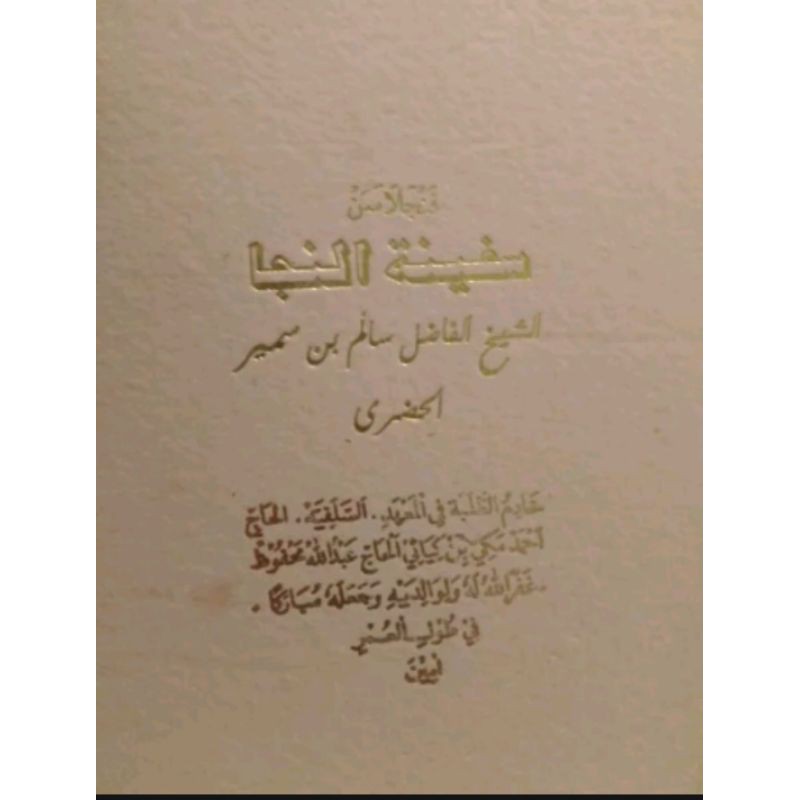 فنجلاسن
سفينة النجا
الشيخ الفاضل سالم بن سمير
الحضرى
خَادِمُ الطَّلَبَة فِي الْمَعْهَدِ. السَّلَفِيَّة. الحَاجّ
أَحْمَدْ مَكِي بِنْ كِيَائِي الْحَاجّ عَبْدُ اللهْ مَحْفُوظْ
.غَفَرَ اللهُ لَهُ وَلِوَالِدَيْهِ وَجَعَلَهُ مُبَارَكًا.
فِيْ طُوْلِ الْعُمْرِ
اٰمِيْنَ